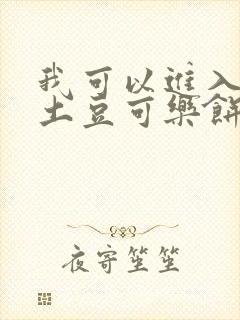 我可以进入
土豆可樂餅
夜寄笙笙